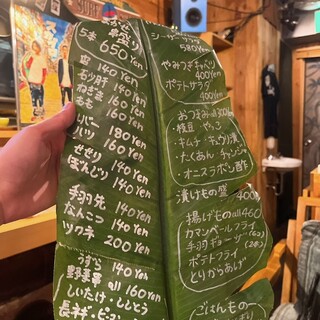 盛り
5本
650Yen
皮 140Yen
砂肝 140Yen
ねぎま 160Yen
もも 160Yen
レバー 180Yen
ハツ 160Yen
せせり 140Yen
ぼんじり 140Yen
手羽先 140Yen
なんこつ 140Yen
ツクネ 200Yen
うずら 140Yen
野菜串 all 160Yen
しいたけ・ししとう
長ネギ・ピーマン
シーザーサラダ
580Yen
やみつきキャベツ
400Yen
ポテトサラダ
400Yen
おつまみ all 300Yen
・枝豆 ・やっこ
・キムチ ・キュウリ漬
・たくあん ・チャンジャ
・オニスラポン酢
漬けもの盛 400
揚げもの all 460
カマンベールフライ
手羽ギョーザ(2本)
ポテトフライ
とりからあげ
ごはんもの